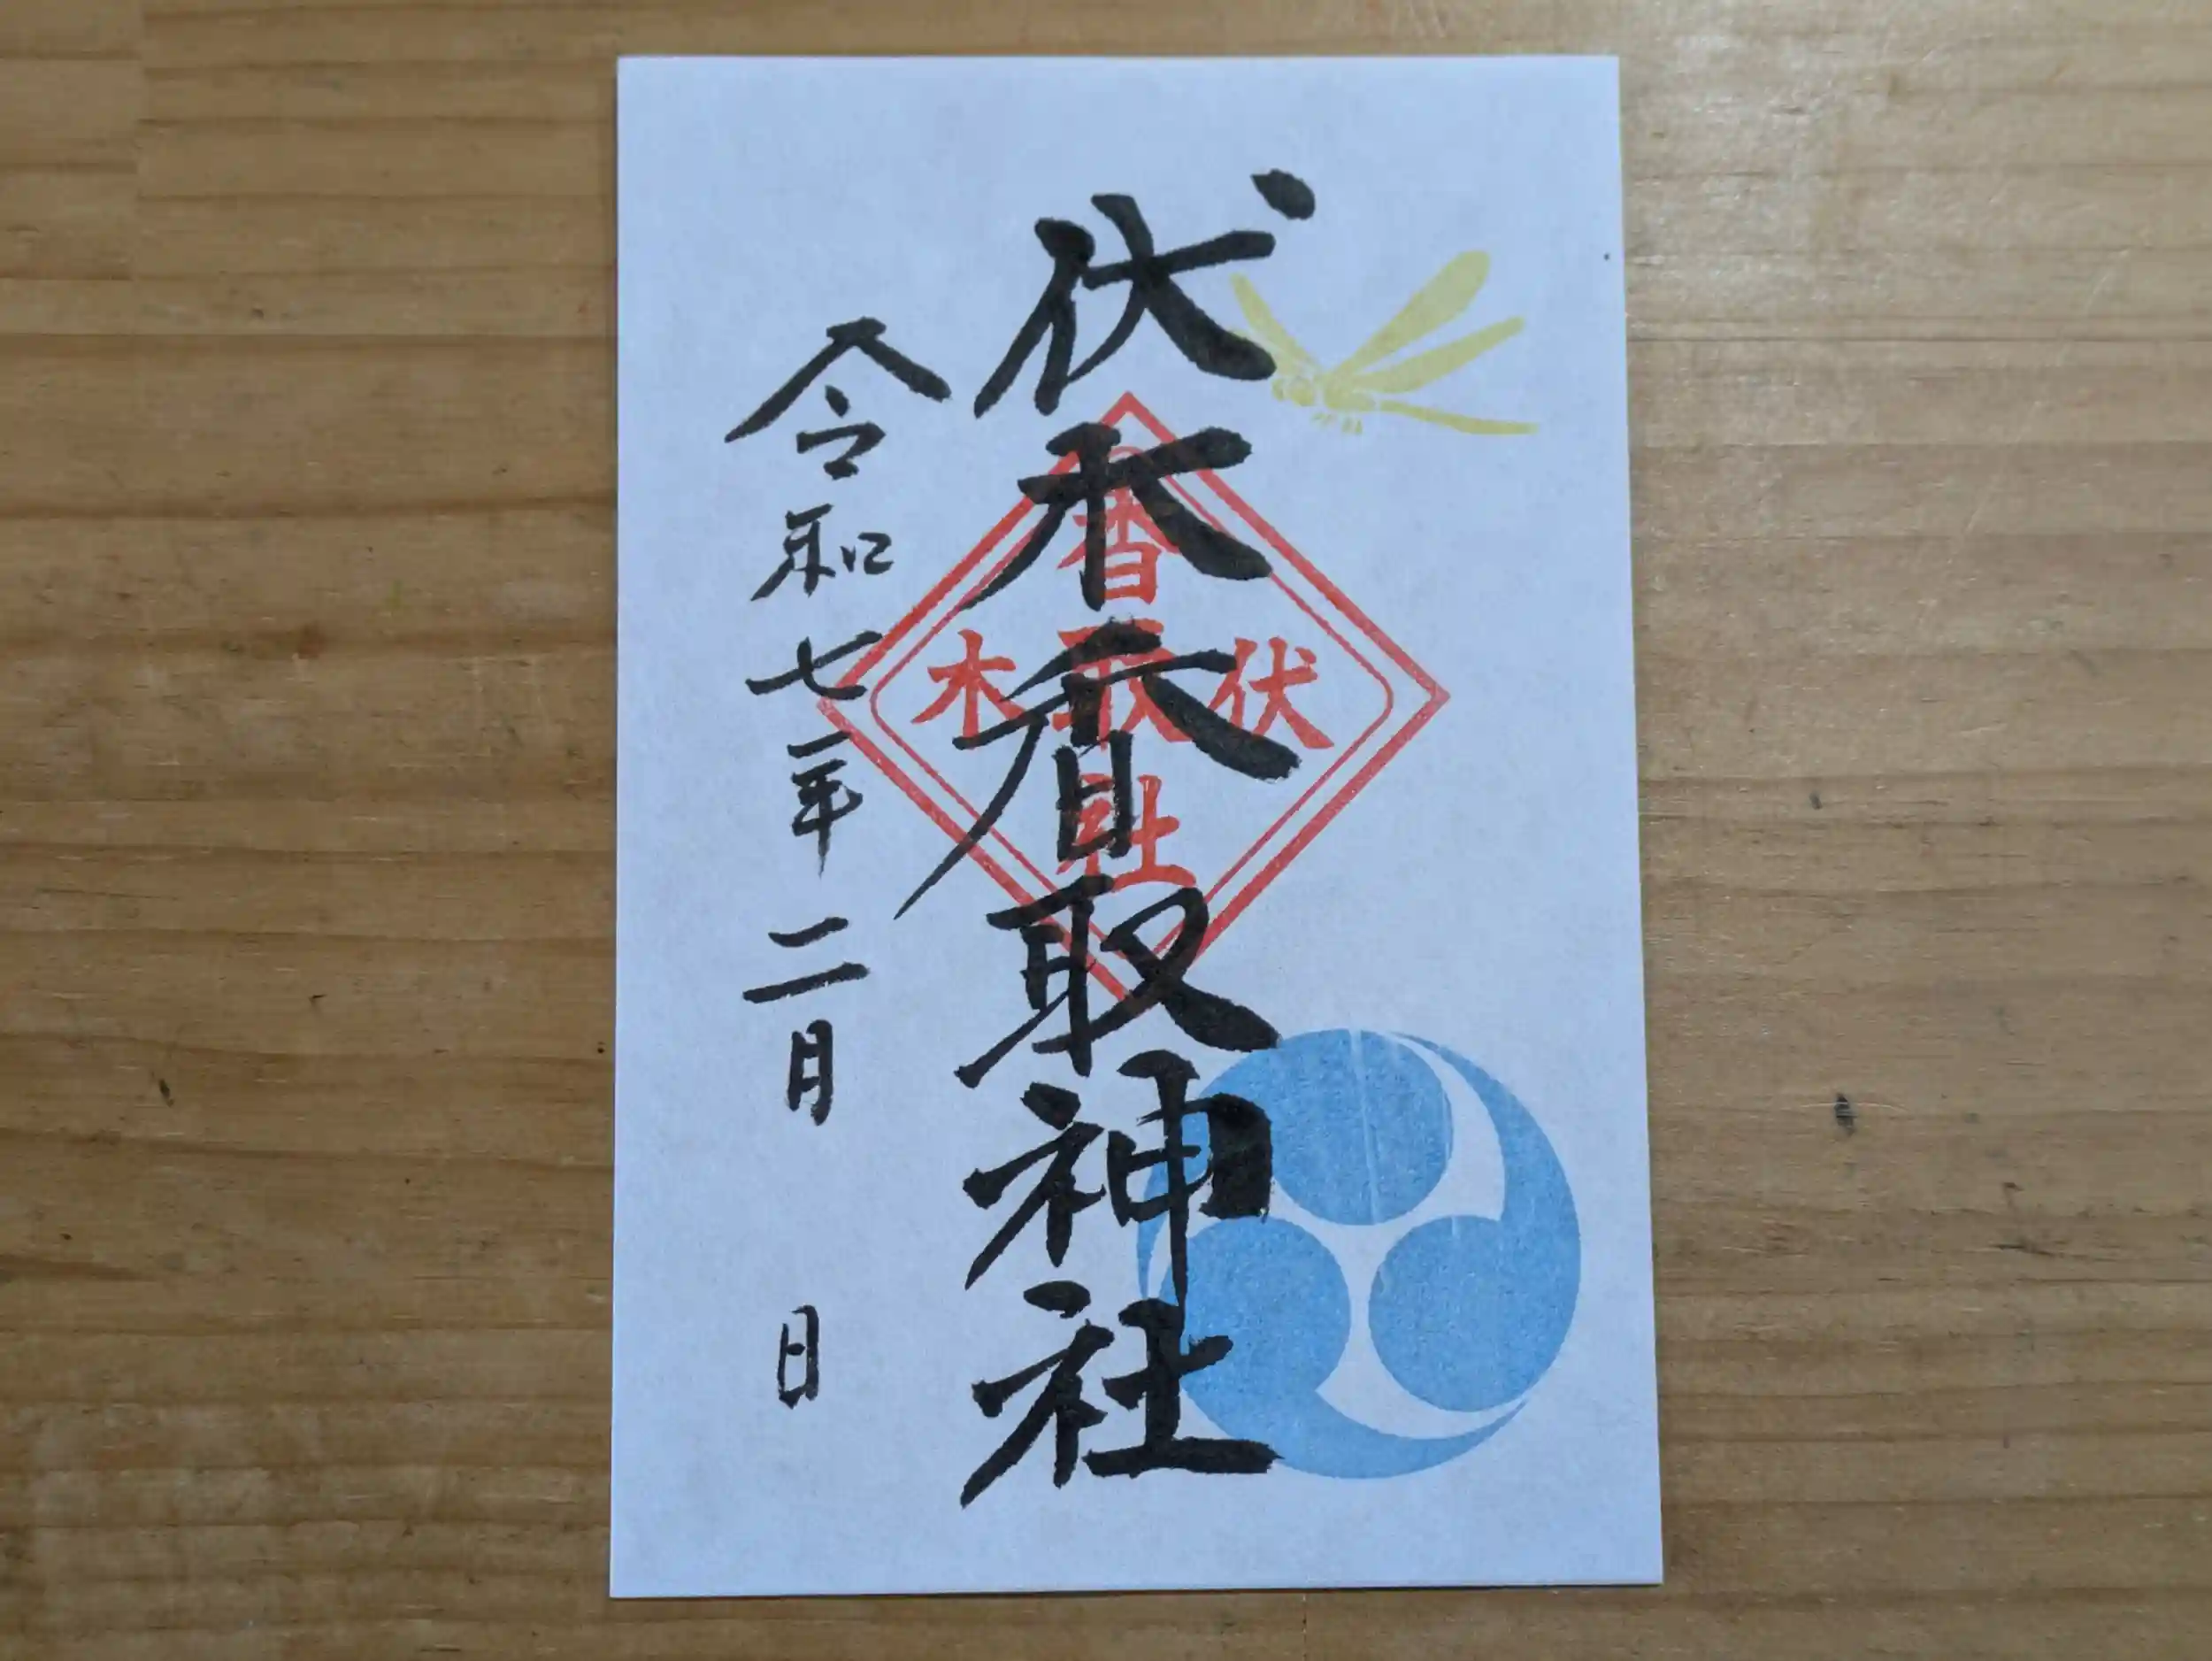 伏木香取神社
令和七年二月 日
香取社
伏木